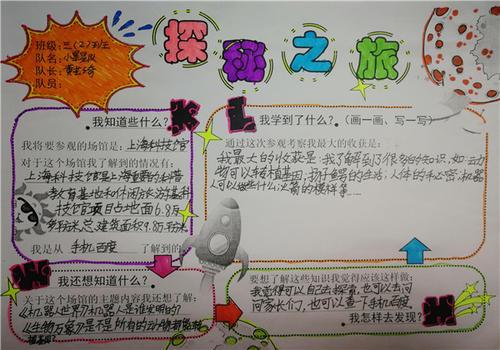 探秘之旅
班级:三(2)班
队名:小星星队
队长:
队员:
K
我知道些什么?
我将要参观的场馆是:上海科技馆
对于这个场馆我了解到的情况有:
上海科技馆是上海重要的科普
教育基地和休闲旅游基地科
技馆项目占地面6.8万
多平方米总,建筑面积9.8万平方米
我是从 手机百度 了解到的。
L
我学到了什么?(画一画、写一写)
通过这次参观考察我最大的收获是:
我最大的收获是:我了解到了很多的知识,如:动
物可以转植基因;娃娃鱼的生活;人体的手心窝;机器
人可以做些什么;火箭的模样等……
W
我还想知道什么?
关于这个场馆的主题内容我还想了解:
《机器人世界》机器人是谁发明的?
《生物万象》是不是所有的动物都能转
植基因?
H
要想了解这些知识我觉得应该这样做:
我觉得可以自己去探索,也可以去问
问家长们,也可以查于手机百度
我怎样去发现?